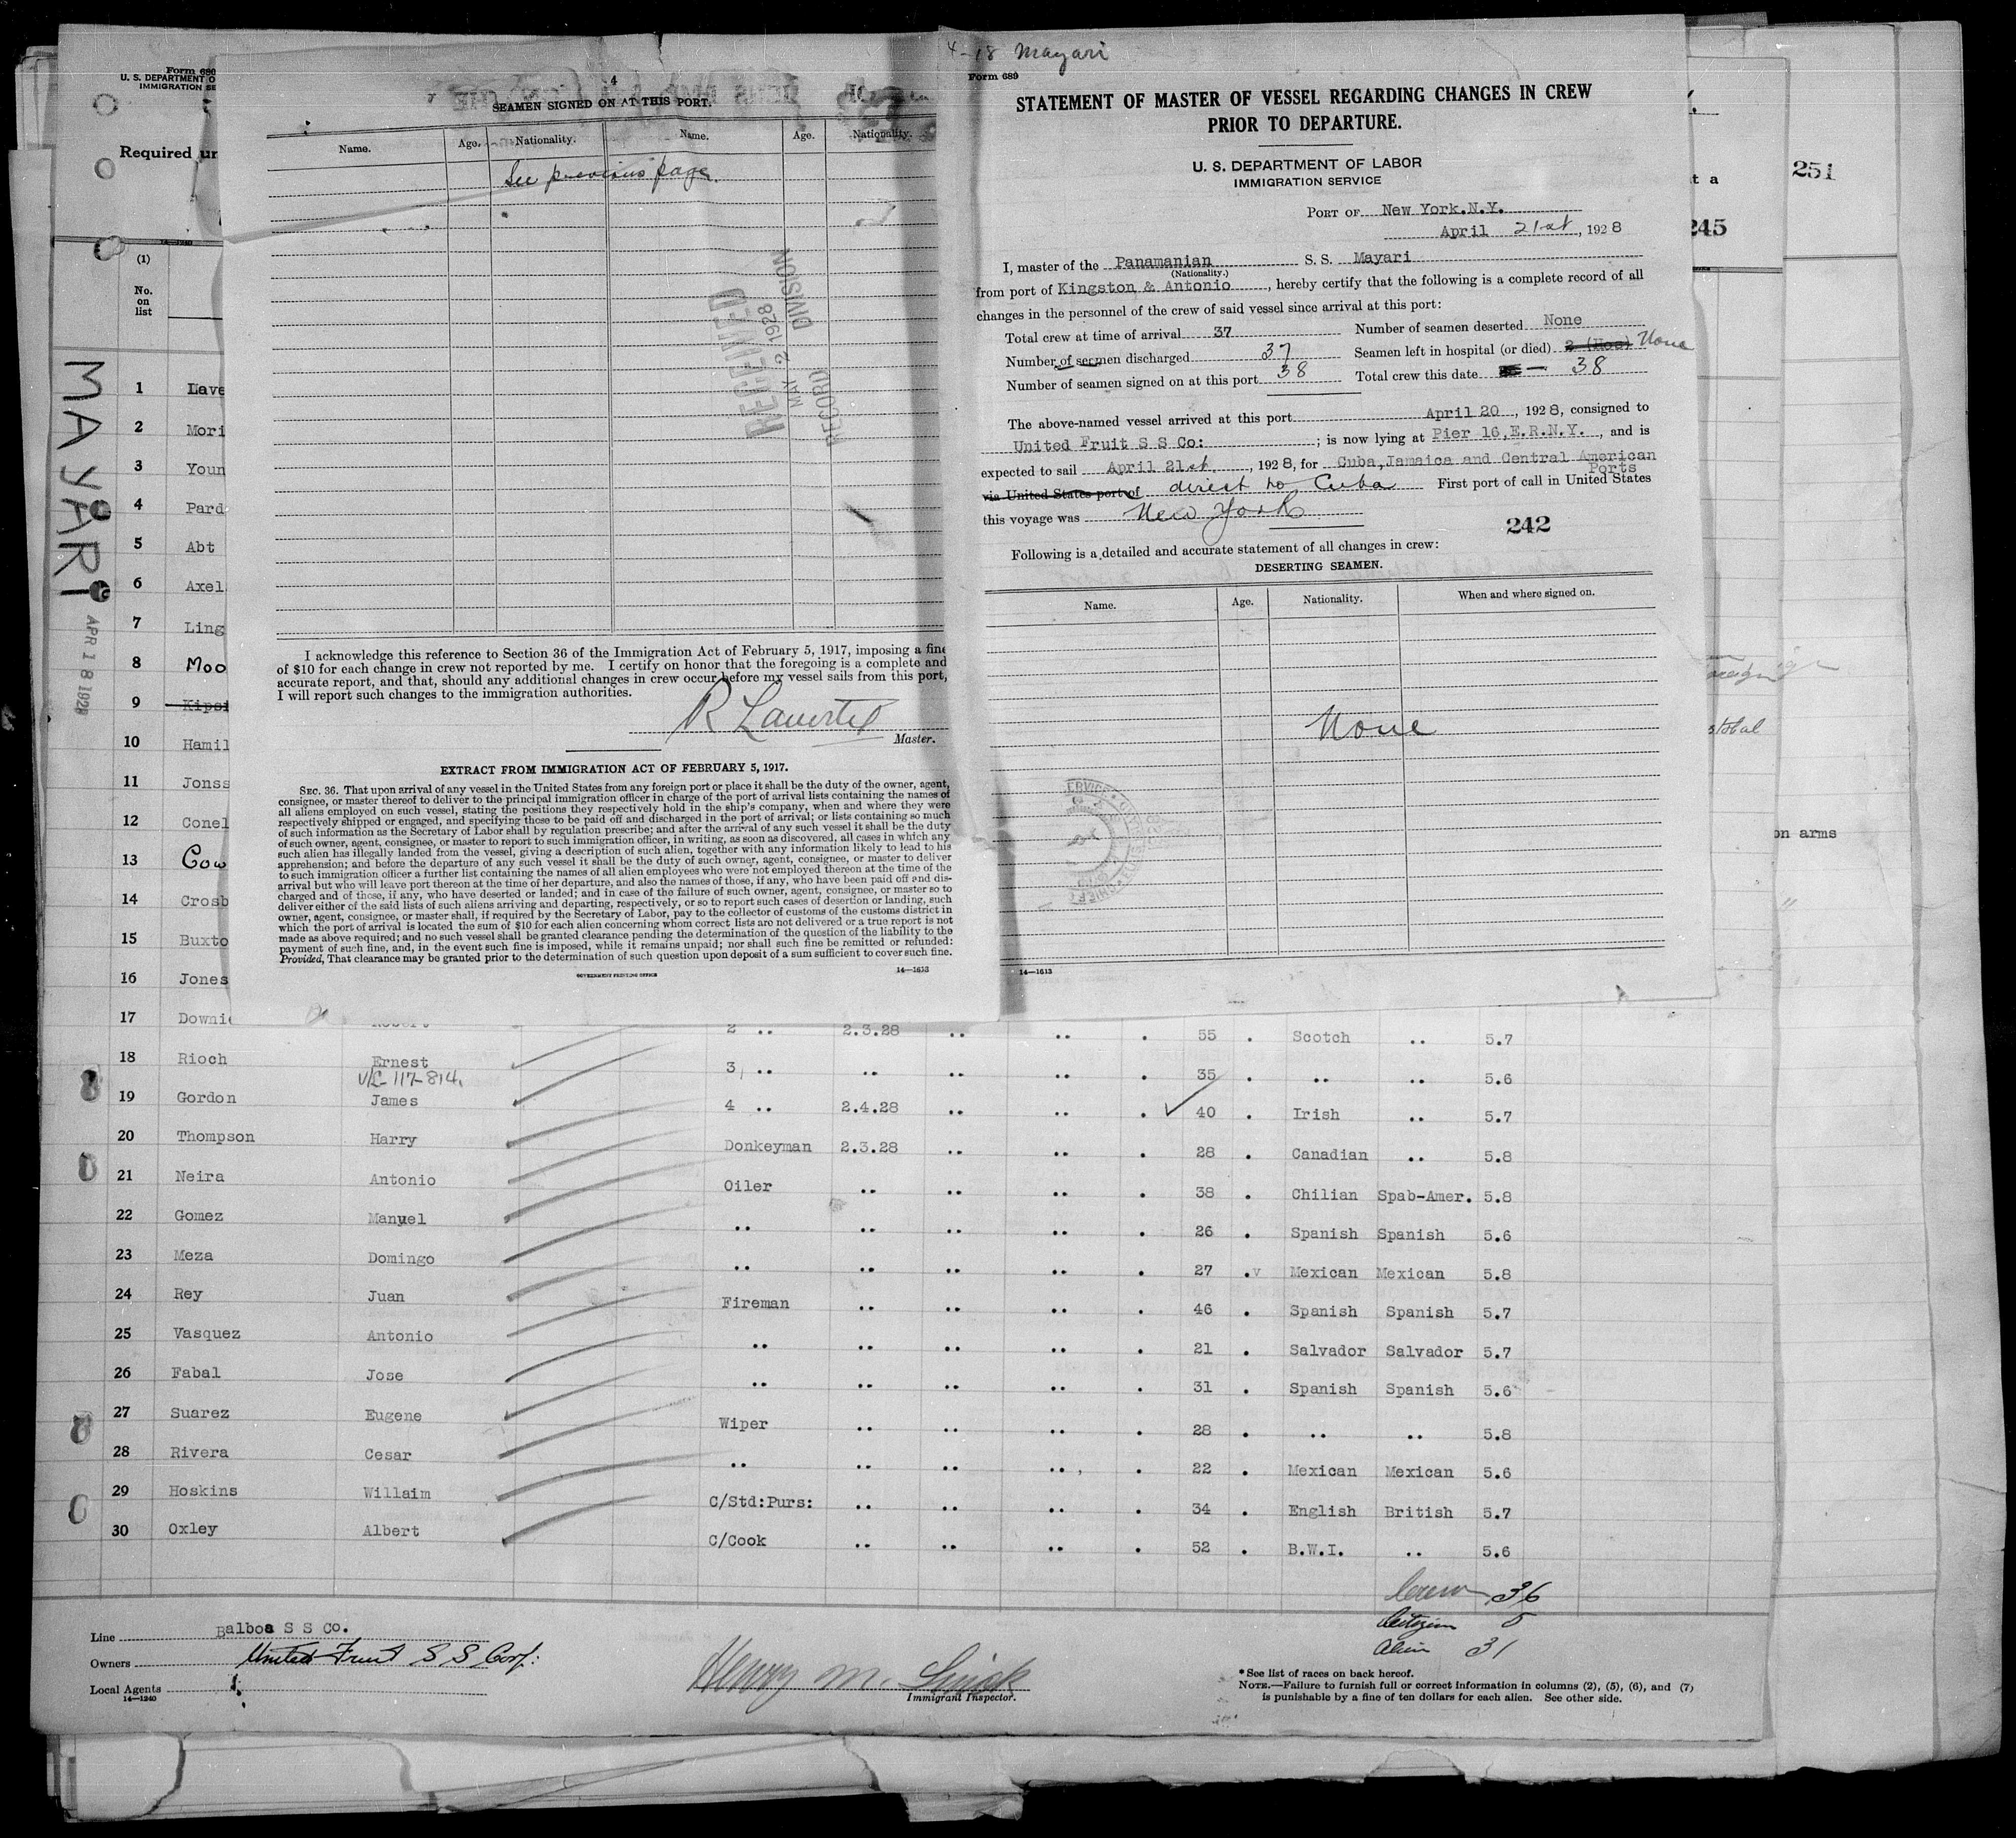 4-18 Mayari
Form 689
STATEMENT OF MASTER OF VESSEL REGARDING CHANGES IN CREW
PRIOR TO DEPARTURE.
U. S. DEPARTMENT OF LABOR
IMMIGRATION SERVICE
PORT OF New York.N.Y.
April 21st, 1928
I, master of the Panamanian S. S. Mayari
(Nationality.)
from port of Kingston & Antonio, hereby certify that the following is a complete record of all
changes in the personnel of the crew of said vessel since arrival at this port:
Total crew at time of arrival 37 Number of seamen deserted None
Number of seamen discharged 37 Seamen left in hospital (or died) None
Number of seamen signed on at this port 38 Total crew this date 38
The above-named vessel arrived at this port April 20, 1928, consigned to
United Fruit S S Co: ; is now lying at Pier 16,E.R.N.Y., and is
expected to sail April 21st, 1928, for Cuba,Jamaica and Central American
Ports
via United States port of direct to Cuba First port of call in United States
this voyage was New York
242
Following is a detailed and accurate statement of all changes in crew:
DESERTING SEAMEN.
Name. Age. Nationality. When and where signed on.
None
14—1613
4
SEAMEN SIGNED ON AT THIS PORT.
Name. Age. Nationality. Name. Age. Nationality.
See previous page.
RECEIVED
MAY 2 1928
RECORD DIVISION
I acknowledge this reference to Section 36 of the Immigration Act of February 5, 1917, imposing a fine
of $10 for each change in crew not reported by me. I certify on honor that the foregoing is a complete and
accurate report, and that, should any additional changes in crew occur before my vessel sails from this port,
I will report such changes to the immigration authorities.
Master.
EXTRACT FROM IMMIGRATION ACT OF FEBRUARY 5, 1917.
SEC. 36. That upon arrival of any vessel in the United States from any foreign port or place it shall be the duty of the owner, agent,
consignee, or master thereof to deliver to the principal immigration officer in charge of the port of arrival lists containing the names of
all aliens employed on such vessel, stating the positions they respectively hold in the ship's company, when and where they were
respectively shipped or engaged, and specifying those to be paid off and discharged in the port of arrival; or lists containing so much
of such information as the Secretary of Labor shall by regulation prescribe; and after the arrival of any such vessel it shall be the duty
of such owner, agent, consignee, or master to report to such immigration officer, in writing, as soon as discovered, all cases in which any
such alien has illegally landed from the vessel, giving a description of such alien, together with any information likely to lead to his
apprehension; and before the departure of any such vessel it shall be the duty of such owner, agent, consignee, or master to deliver
to such immigration officer a further list containing the names of all alien employees who were not employed thereon at the time of the
arrival but who will leave port thereon at the time of her departure, and also the names of those, if any, who have been paid off and dis-
charged and of those, if any, who have deserted or landed; and in case of the failure of such owner, agent, consignee, or master so to
deliver either of the said lists of such aliens arriving and departing, respectively, or so to report such cases of desertion or landing, such
owner, agent, consignee, or master shall, if required by the Secretary of Labor, pay to the collector of customs of the customs district in
which the port of arrival is located the sum of $10 for each alien concerning whom correct lists are not delivered or a true report is not
made as above required; and no such vessel shall be granted clearance pending the determination of the question of the liability to the
payment of such fine, and, in the event such fine is imposed, while it remains unpaid; nor shall such fine be remitted or refunded:
Provided, That clearance may be granted prior to the determination of such question upon deposit of a sum sufficient to cover such fine.
GOVERNMENT PRINTING OFFICE 14—1613
Form 680
U. S. DEPARTMENT O
IMMIGRATION SE
Required un
251
t a
245
on arms
MAYARI
APR 18 1928
(1)
No.
on
list
1 Lave
2 Mori
3 Youn
4 Pard
5 Abt
6 Axel
7 Ling
8 Moo
9 Kips
10 Hamil
11 Jonss
12 Conel
13 Cow
14 Crosb
15 Buxto
16 Jones
17 Downie Robert 2 .. 2.3.28 .. .. . 55 . Scotch .. 5.7
18 Rioch Ernest 3 .. .. .. .. . 35 . .. .. 5.6
V/L 117-814.
19 Gordon James 4 .. 2.4.28 .. .. . 40 . Irish .. 5.7
20 Thompson Harry Donkeyman 2.3.28 .. .. . 28 . Canadian .. 5.8
21 Neira Antonio Oiler .. .. .. . 38 . Chilian Spab-Amer. 5.8
22 Gomez Manuel .. .. .. .. . 26 . Spanish Spanish 5.6
23 Meza Domingo .. .. .. .. . 27 .v Mexican Mexican 5.8
24 Rey Juan Fireman .. .. .. . 46 . Spanish Spanish 5.7
25 Vasquez Antonio .. .. .. .. . 21 . Salvador Salvador 5.7
26 Fabal Jose .. .. .. .. . 31 . Spanish Spanish 5.6
27 Suarez Eugene Wiper .. .. .. . 28 . .. .. 5.8
28 Rivera Cesar .. .. .. .. . 22 . Mexican Mexican 5.6
29 Hoskins Willaim C/Std:Purs: .. .. .. . 34 . English British 5.7
30 Oxley Albert C/Cook .. .. .. . 52 . B.W.I. .. 5.6
Crew 36
Citizen 5
Alien 31
Line Balboa S S Co.
Owners United Fruit S S Corp:
Local Agents
14—1240
Immigrant Inspector.
*See list of races on back hereof.
NOTE.—Failure to furnish full or correct information in columns (2), (5), (6), and (7)
is punishable by a fine of ten dollars for each alien. See other side.